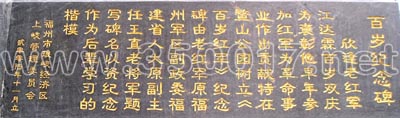 百岁纪念碑
欣逢老红军
江达霖百岁双庆
为褒彰他早年参
加红军为革命事
业作出贡献特在
鳌山公园树立《
百岁红军》纪念
碑由老红军原福
州军区副政委福
建省人大原副主
任王直老将军题
写碑名人资纪念
作为后辈学习的
楷模
福州市琅岐经济区
上岐管理委员会
年十一月立